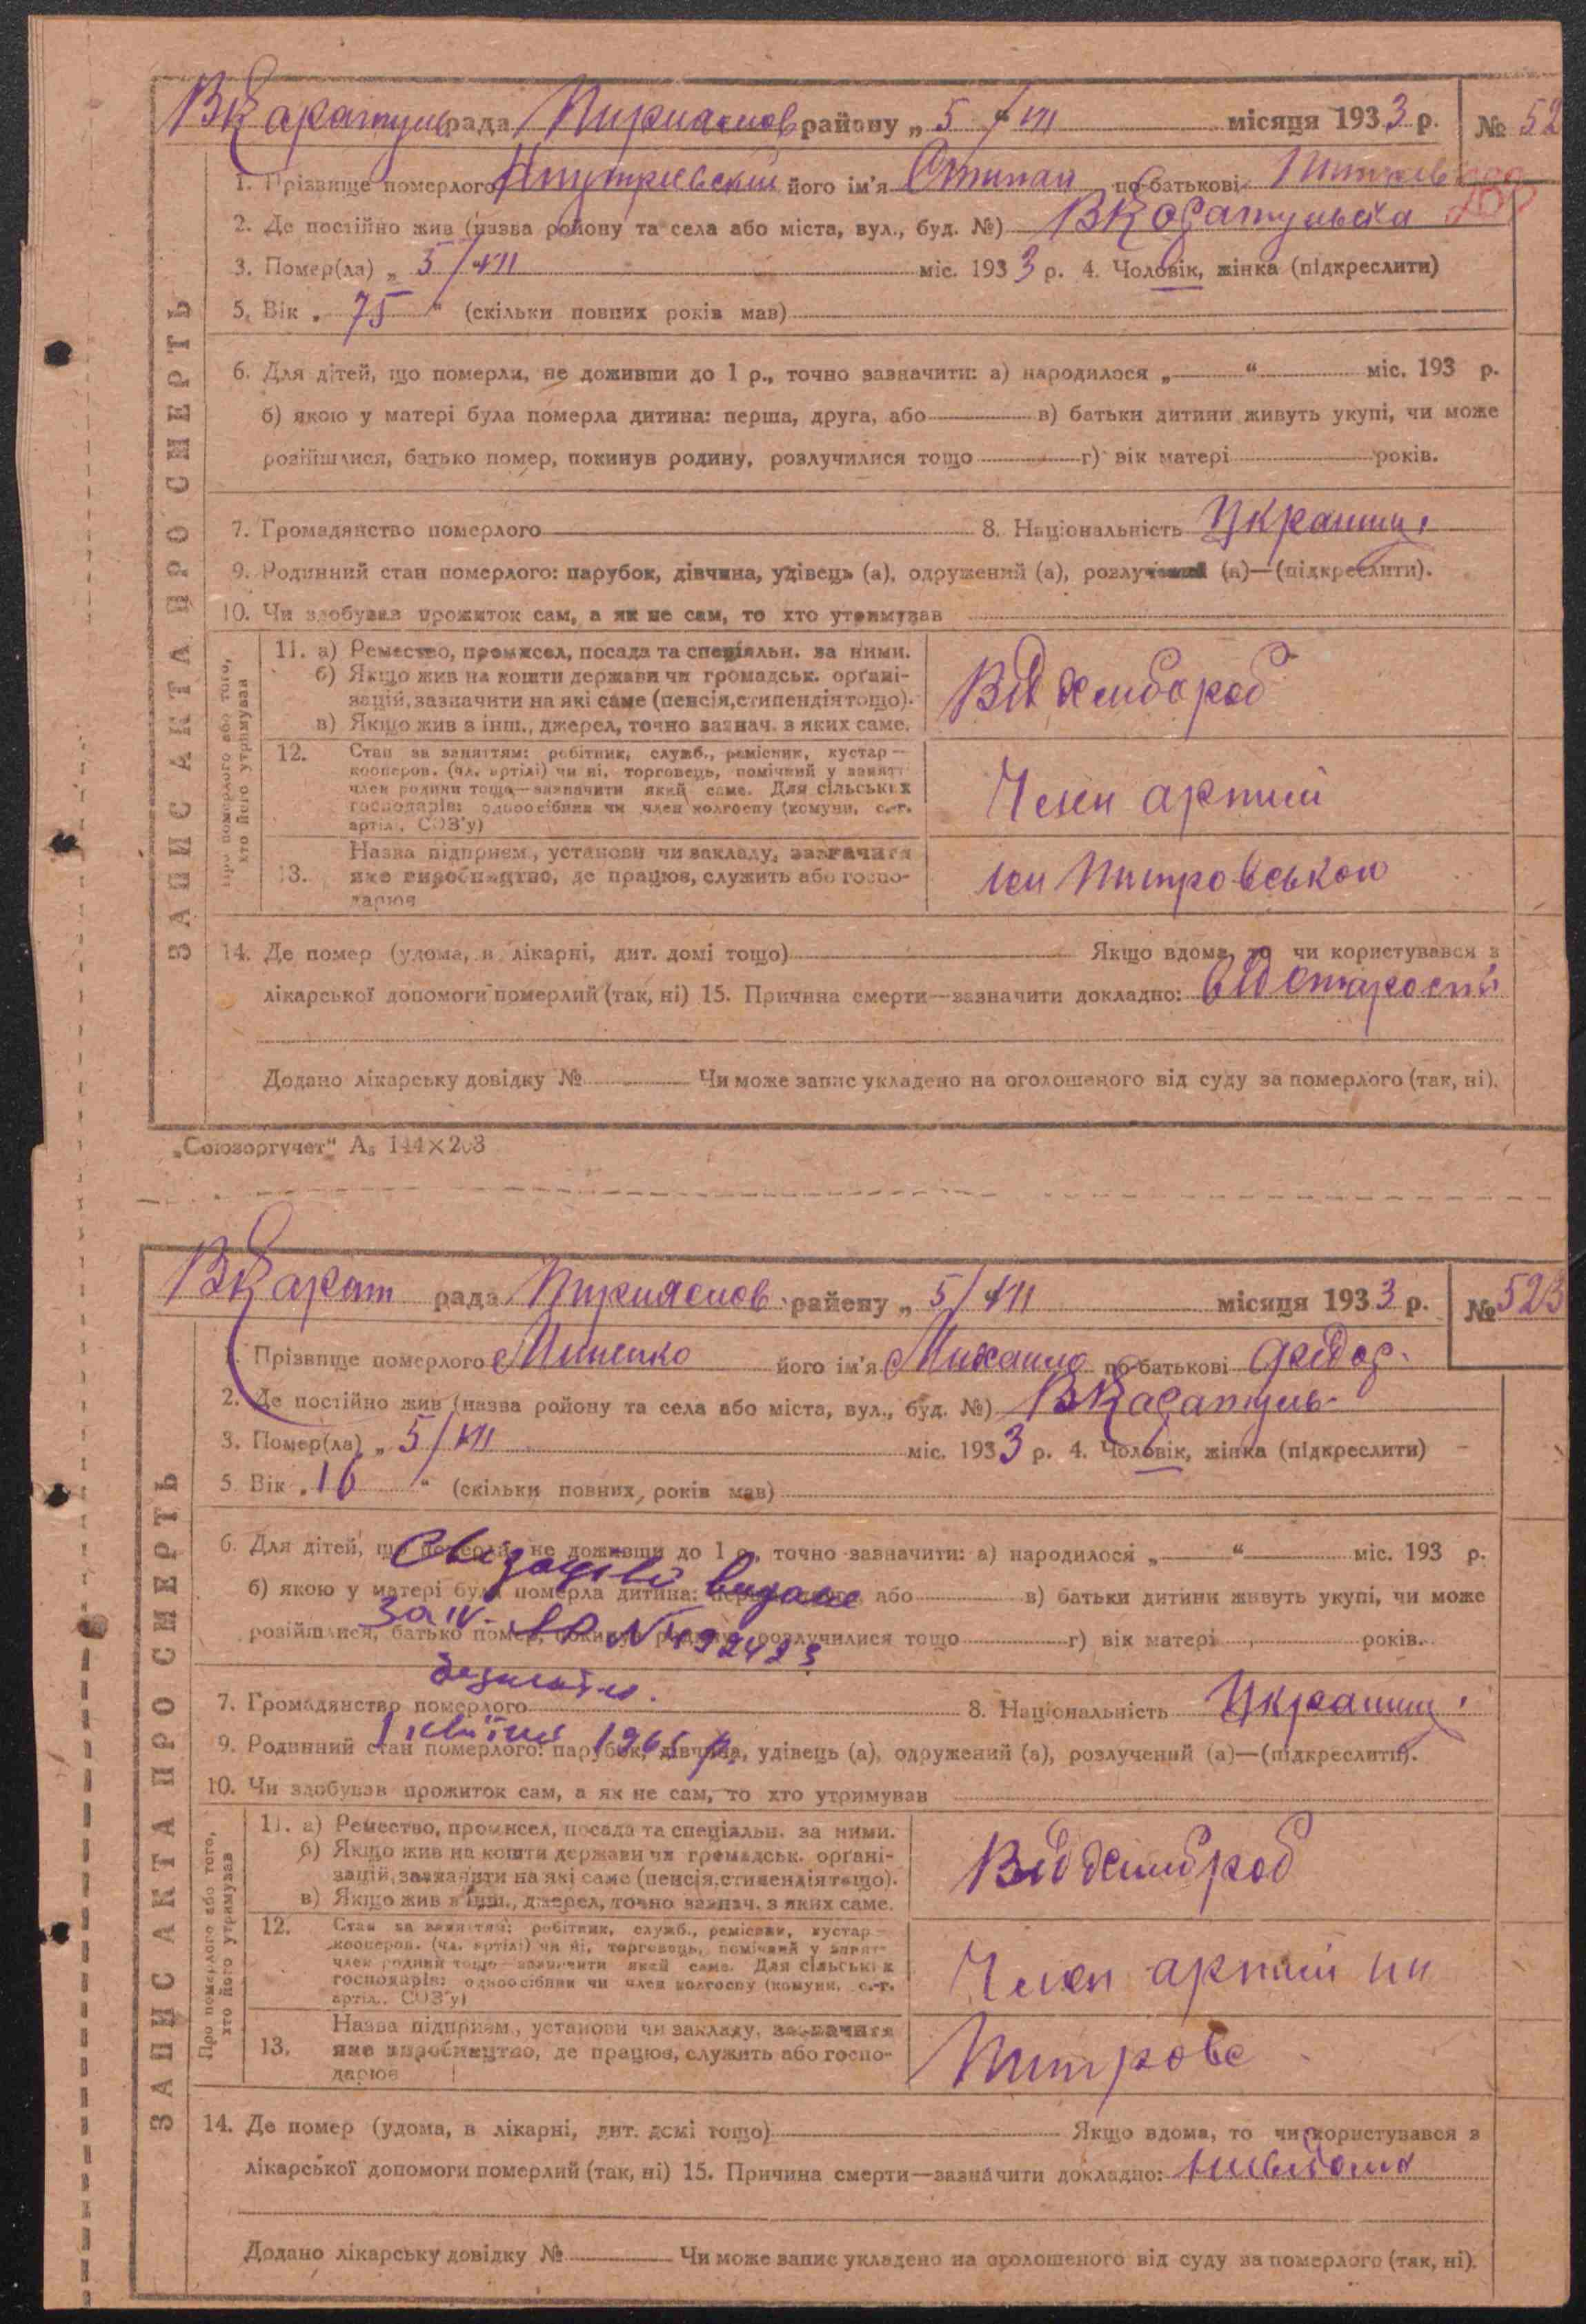 ЗАПИС АКТА ПРО СМЕРТЬ
ВКаратуль рада Пириаслов району „ 5 / VII місяця 1933 р. № 52
1. Прізвище померлого його ім'я Стипан по-батькові
2. Де постійно жив (назва району та села або міста, вул., буд. №) ВКаратульска
3. Помер(ла) „ 5/VII міс. 1933 р. 4. Чоловік, жінка (підкреслити)
5. Вік „ 75 “ (скільки повних років мав)
6. Для дітей, що померли, не доживши до 1 р., точно зазначити: а) народилося „ “ міс. 193 р.
б) якою у матері була померла дитина: перша, друга, або в) батьки дитини живуть укупі, чи може
розійшлися, батько помер, покинув родину, розлучилися тощо г) вік матері років.
7. Громадянство померлого 8. Національність Украинц.
9. Родинний стан померлого: парубок, дівчина, удівець (а), одружений (а), розлучений (а)—(підкреслити).
10. Чи здобував прожиток сам, а як не сам, то хто утримував
Про померлого або того, хто його утримував
11. а) Ремество, промисел, посада та спеціяльн. за ними.
б) Якщо жив на кошти держави чи громадськ. орґані-
зацій, зазначити на які саме (пенсія, стипендія тощо).
в) Якщо жив з інш., джерел, точно зазнач. з яких саме.
Від хлибороб
12. Стан за заняттям: робітник, служб., ремісник, кустар—
кооперов. (чл. артілі) чи ні, торговець, помічний у занятт
член родини тощо—зазначити який саме. Для сільських
господарів: одноосібник чи член колгоспу (комуни, с.-г.
артіл., СОЗ'у)
Член артили
13. Назва підприєм., установи чи закладу, зазначити
яке виробництво, де працює, служить або госпо-
дарює
им Питровськои
14. Де помер (удома, в лікарні, дит. домі тощо) Якщо вдома, то чи користувався з
лікарської допомоги померлий (так, ні) 15. Причина смерти—зазначити докладно: від старости
Додано лікарську довідку № Чи може запис укладено на оголошеного від суду за померлого (так, ні).
„Союзоргучет“ А₅ 144×203
ЗАПИС АКТА ПРО СМЕРТЬ
ВКарат рада Пирияслов району „ 5/VII місяця 1933 р. № 523
1. Прізвище померлого Миненко його ім'я Михаило по-батькові Федор.
2. Де постійно жив (назва району та села або міста, вул., буд. №) ВКаратуль
3. Помер(ла) „ 5/VII міс. 1933 р. 4. Чоловік, жінка (підкреслити)
5. Вік „ 16 “ (скільки повних років мав)
6. Для дітей, що померли, не доживши до 1 р., точно зазначити: а) народилося „ “ міс. 193 р.
б) якою у матері була померла дитина: перша, друга, або в) батьки дитини живуть укупі, чи може
розійшлися, батько помер, покинув родину, розлучилися тощо г) вік матері років.
видане
№ 492423
1965 р.
7. Громадянство померлого 8. Національність Украинц.
9. Родинний стан померлого: парубок, дівчина, удівець (а), одружений (а), розлучений (а)—(підкреслити).
10. Чи здобував прожиток сам, а як не сам, то хто утримував
Про померлого або того, хто його утримував
11. а) Ремество, промисел, посада та спеціяльн. за ними.
б) Якщо жив на кошти держави чи громадськ. орґані-
зацій, зазначити на які саме (пенсія, стипендія тощо).
в) Якщо жив з інш., джерел, точно зазнач. з яких саме.
Від хлиброб
12. Стан за заняттям: робітник, служб., ремісник, кустар—
кооперов. (чл. артілі) чи ні, торговець, помічний у занятт
член родини тощо—зазначити який саме. Для сільських
господарів: одноосібник чи член колгоспу (комуни, с.-г.
артіл., СОЗ'у)
Член артили им
13. Назва підприєм., установи чи закладу, зазначити
яке виробництво, де працює, служить або госпо-
дарює
Питровс
14. Де помер (удома, в лікарні, дит. домі тощо) Якщо вдома, то чи користувався з
лікарської допомоги померлий (так, ні) 15. Причина смерти—зазначити докладно: нивідома
Додано лікарську довідку № Чи може запис укладено на оголошеного від суду за померлого (так, ні).